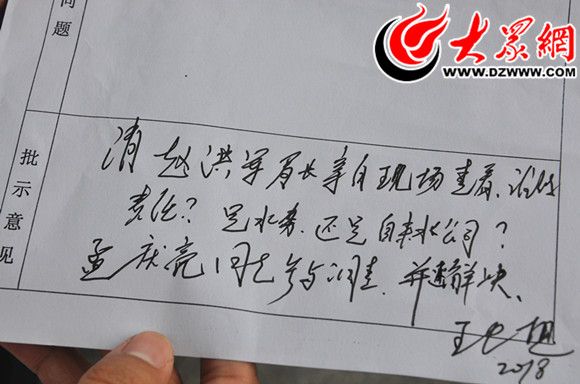 大眾網
WWW.DZWWW.COM
问题
批示意见
请赵洪军局长亲自现场查看、谁的
责任?是水务、还是自来水公司?
孟庆亮同志参与调查、并速解决、
王